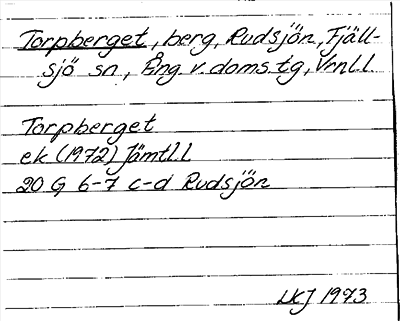 Torpberget, berg, Rudsjön, Fjäll-
sjö sn, Ång. v. doms. tg, Vrnl. l.
Torpberget
ek (1972) Jämtl. l
20 G 6-7 c-d Rudsjön
LKJ 1973